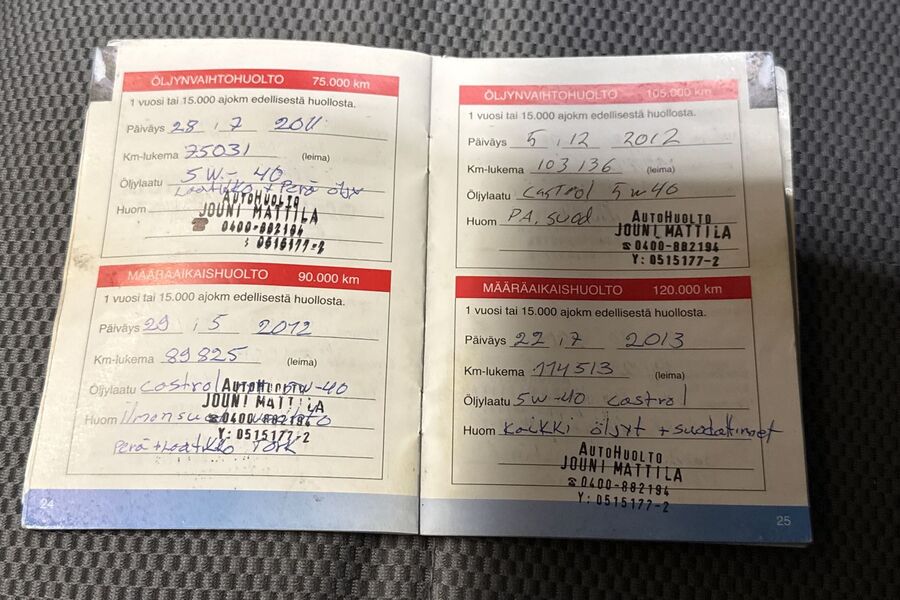 ÖLJYNVAIHTOHUOLTO 75.000 km
1 vuosi tai 15.000 ajokm edellisestä huollosta.
Päiväys 28 . 7 2011
Km-lukema 75031 (leima)
Öljylaatu 5W-40
Laatikko + Perä öljy
Huom
AUTOHUOLTO
JOUNI MATTILA
☎ 0400-882194
: 0515177-2
MÄÄRÄAIKAISHUOLTO 90.000 km
1 vuosi tai 15.000 ajokm edellisestä huollosta.
Päiväys 29 . 5 2012
Km-lukema 89825 (leima)
Öljylaatu Castrol 5W-40
Huom
Perä + Laatikko
AUTOHUOLTO
JOUNI MATTILA
☎ 0400-882194
Y: 0515177-2
24
ÖLJYNVAIHTOHUOLTO 105.000 km
1 vuosi tai 15.000 ajokm edellisestä huollosta.
Päiväys 5 . 12 2012
Km-lukema 103136 (leima)
Öljylaatu Castrol 5w40
Huom P.A. suod
AUTOHUOLTO
JOUNI MATTILA
☎ 0400-882194
Y: 0515177-2
MÄÄRÄAIKAISHUOLTO 120.000 km
1 vuosi tai 15.000 ajokm edellisestä huollosta.
Päiväys 22 . 7 2013
Km-lukema 114513 (leima)
Öljylaatu 5W-40 castrol
Huom Kaikki öljyt + suodattimet
AUTOHUOLTO
JOUNI MATTILA
☎ 0400-882194
Y: 0515177-2
25